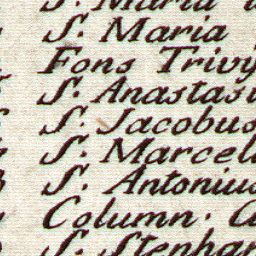 S. Maria
S. Maria
Fons Trivy
S. Anastasi
S. Jacobus
S. Marcell
S. Antonius
Column.
S. Stephan